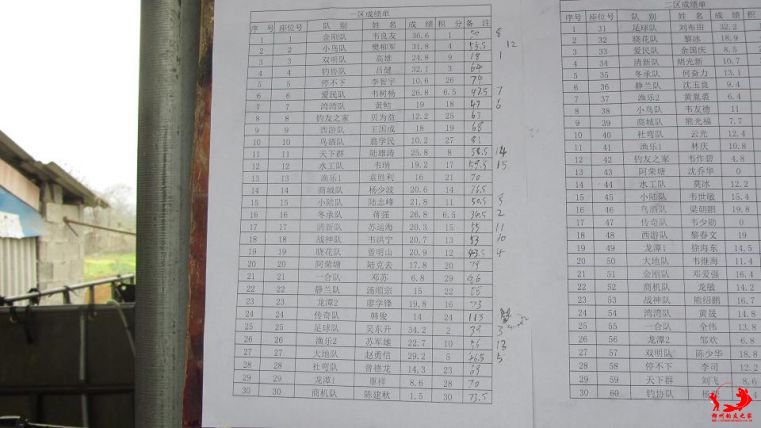 一区成绩单
序 号 座位号 队 别 姓 名 成 绩 积 分 备 注
1 1 金刚队 韦良友 36.6 1 50 8
2 2 小鸟队 樊柳军 31.8 4 53.5 12
3 3 双明队 高雄 24.8 9 18 1
4 4 钓协队 吕健 32.1 3 64
5 5 停不下 李智宇 10.6 26
6 6 爱民队 韦树杨 26.8 6.5 7
7 7 湾湾队 黄勉 19 18 47 6
8 8 钓友之家 贝为益 12.2 25 63
9 9 西游队 王国成 18 19 68
10 10 鸟酒队 蓝学民 10.2 27
11 11 天下群 陆雄涛 25.8 8 58.5 14
12 12 水工队 韦瑞 19.2 17 58.5 15
13 13 渔乐1 袁胜利 16 21 70
14 14 商城队 杨少波 20.6 14
15 15 小陆队 陆志峰 21.8 11 50.5
16 16 冬承队 蒋强 26.8 6.5 2
17 17 清新队 苏运海 20.3 15 55 11
18 18 战神队 韦洪宁 20.7 13 53 10
19 19 晓花队 曾明山 20.9 12 4
20 20 阿荣塘 陆克去 17.8 20
21 21 一合队 邓苏 6.8 29
22 22 静兰队 汤顺宗 15 22
23 23 龙潭2 廖学锋 19.8 16 73
24 24 传奇队 韩俊 14 24 113
25 25 足球队 吴东升 34.2 2 39 3
26 26 渔乐2 苏军雄 22.7 10
27 27 大地队 赵勇信 29.2 5 5
28 28 社弯队 曾德龙 14.3 23 69
29 29 龙潭1 覃祥 8.6 28 70
30 30 商机队 陈建秋 1.5 30 73.5
二区成绩单
序号 座位号 队 别 姓 名 成 绩 积
1 31 足球队 刘布田 32.2
2 32 晓花队 黎冰 18.9
3 33 爱民队 余国庆 8.5
4 34 清新队 胡光新 10.7
5 35 冬承队 何奋力 13.1
6 36 静兰队 沈玉良 9.4
7 37 渔乐2 6.4
8 38 小鸟队 韦友德 11
9 39 商城队 熊光福 7.7
10 40 社弯队 云光 12.4
11 41 渔乐1 林庆 10.8
12 42 钓友之家 韦作碧 4.8
13 43 阿荣塘 沈乔华 0
14 44 水工队 莫冰 12.2
15 45 小陆队 韦世敏 15.4
16 46 鸟酒队 梁朝鹏 19.8
17 47 传奇队 韦少勋 0
18 48 西游队 黎春文 19
19 49 龙潭1 徐海东 14.5
20 50 大地队 韦继海 11.4
21 51 金刚队 邓爱强 16.4
22 52 商机队 龙敏 14.2
23 53 战神队 熊绍鹏 16.7
24 54 湾湾队 黄晟 14.8
25 55 一合队 全伟 13.8
26 56 龙潭2 邹欢 6.8
27 57 双明队 陈少华 18.8
28 58 停不下 李司 12.2
29 59 天下群 刘飞 8.6
30 60 钓协队
柳州钓友之家